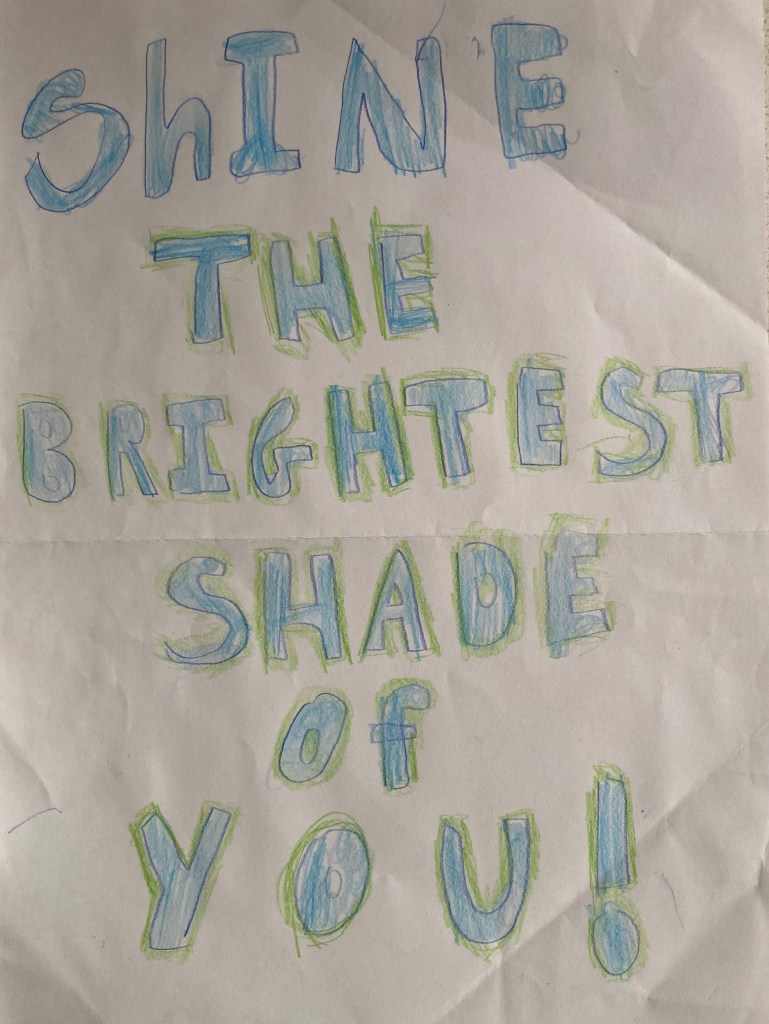 ShINE
THE
BRIGHTEST
SHADE
Of
YOU!